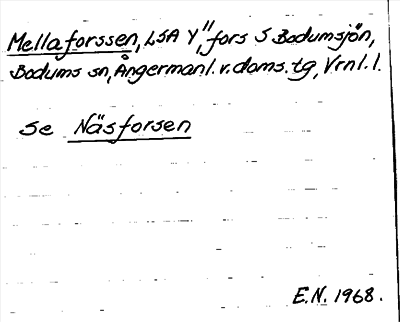 Mellaforssen, LSA Y", fors S Bodumsjön,
Bodums sn, Ångermanl. v. doms. tg, Vrnl. l.
se Näsforsen
E.N. 1968.